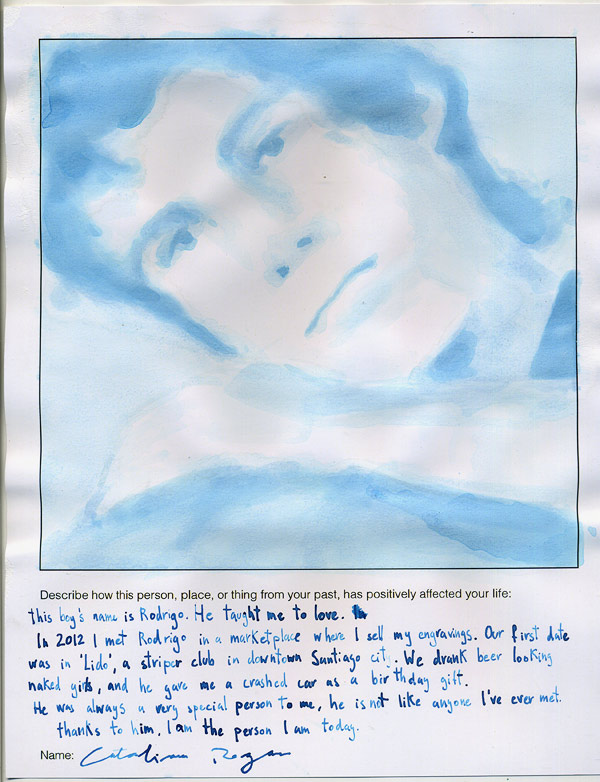 Describe how this person, place, or thing from your past, has positively affected your life:
this boy's name is Rodrigo. He taught me to love.
In 2012 I met Rodrigo in a marketplace where I sell my engravings. Our first date
was in 'Lido', a striper club in downtown Santiago city. We drank beer looking
naked girls, and he gave me a crashed car as a birthday gift.
He was always a very special person to me, he is not like anyone I've ever met.
thanks to him, I am the person I am today.
Name: Catalina